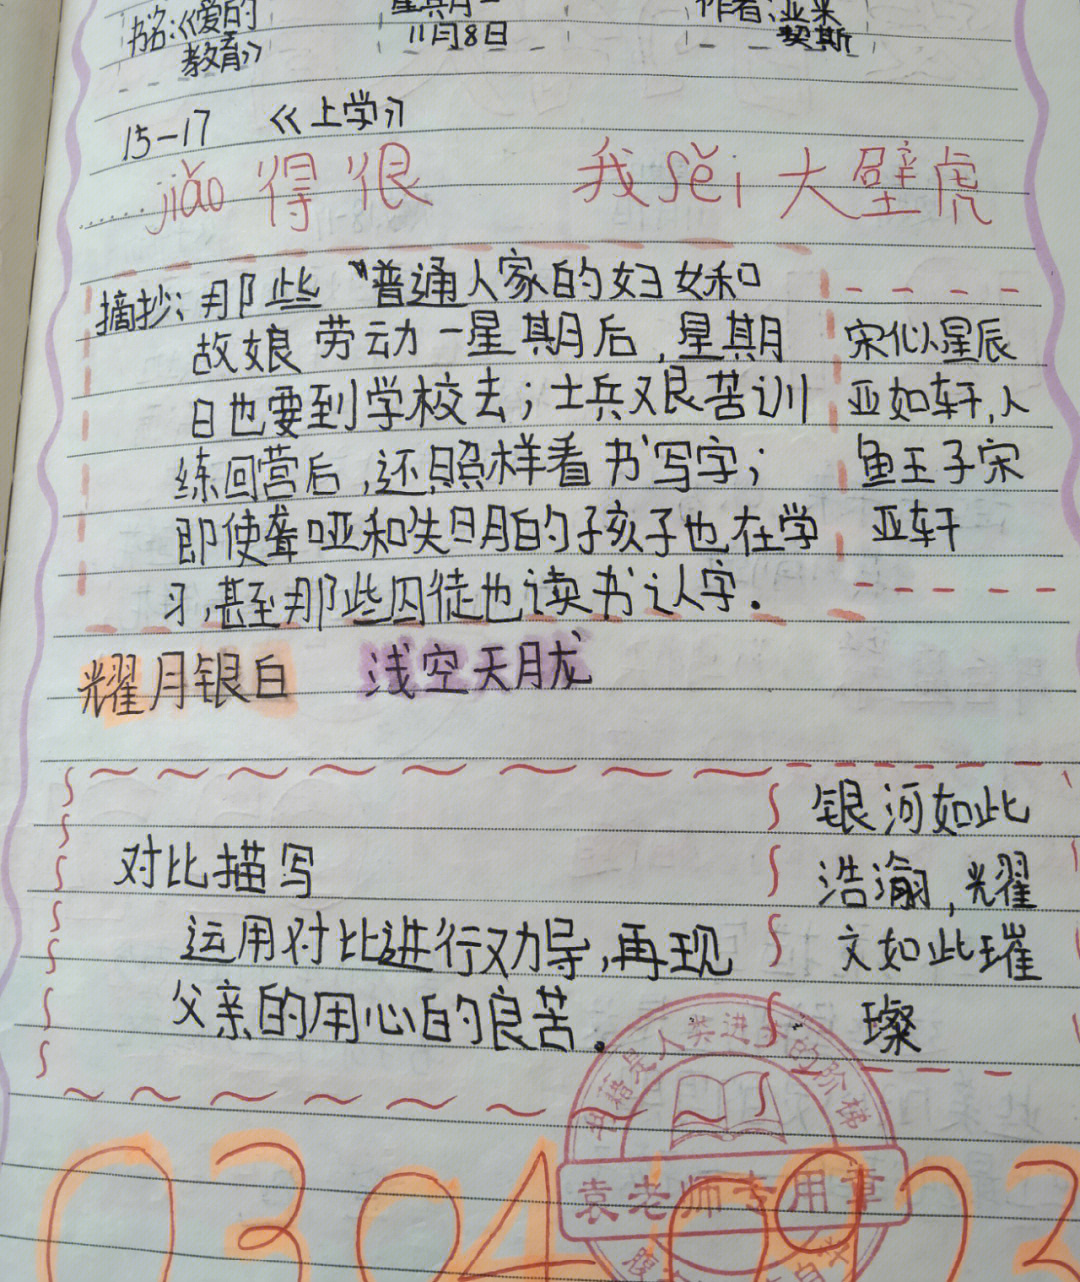 书名:《爱的
教育》
星期一
11月8日
作者:亚米
契斯
15-17 《上学》
jiǎo 得很 我 sěi 大壁虎
摘抄:那些“普通人家的妇女和
故娘劳动一星期后,星期
日也要到学校去;士兵艰苦训
练回营后,还照样看书写字;
即使聋哑和失明的孩子也在学
习,甚至那些囚徒也读书认字.
宋似星辰
亚如轩,人
鱼王子宋
亚轩
耀月银白 浅空天月龙
对比描写
运用对比进行劝导,再现
父亲的用心的良苦.
银河如此
浩渝,耀
文如此璀
璨
书籍是人类进步的阶梯
袁老师专用章